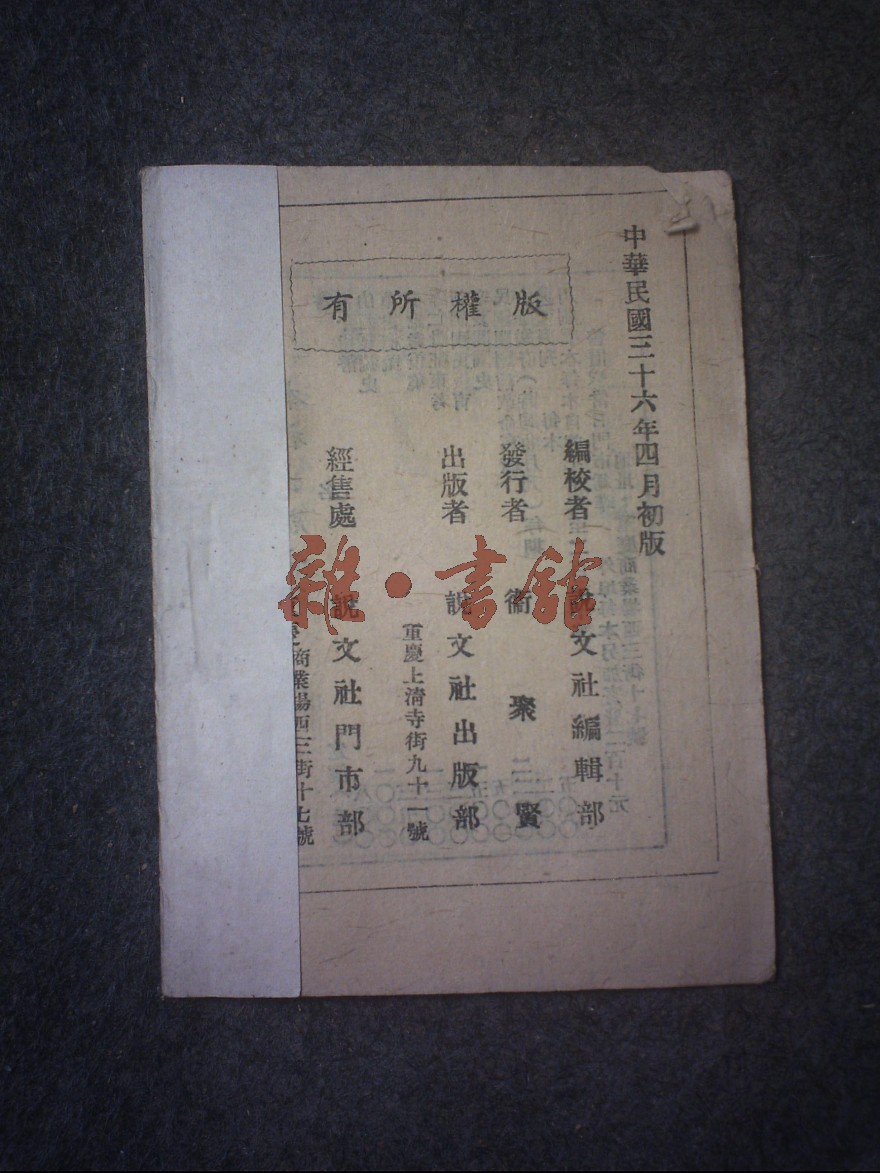 中華民國三十六年四月初版
版權所有
編校者 說文社編輯部
發行者 衞聚賢
出版者 說文社出版部
重慶上清寺街九十一號
經售處 說文社門市部
商業場西三街十七號
雜·書館